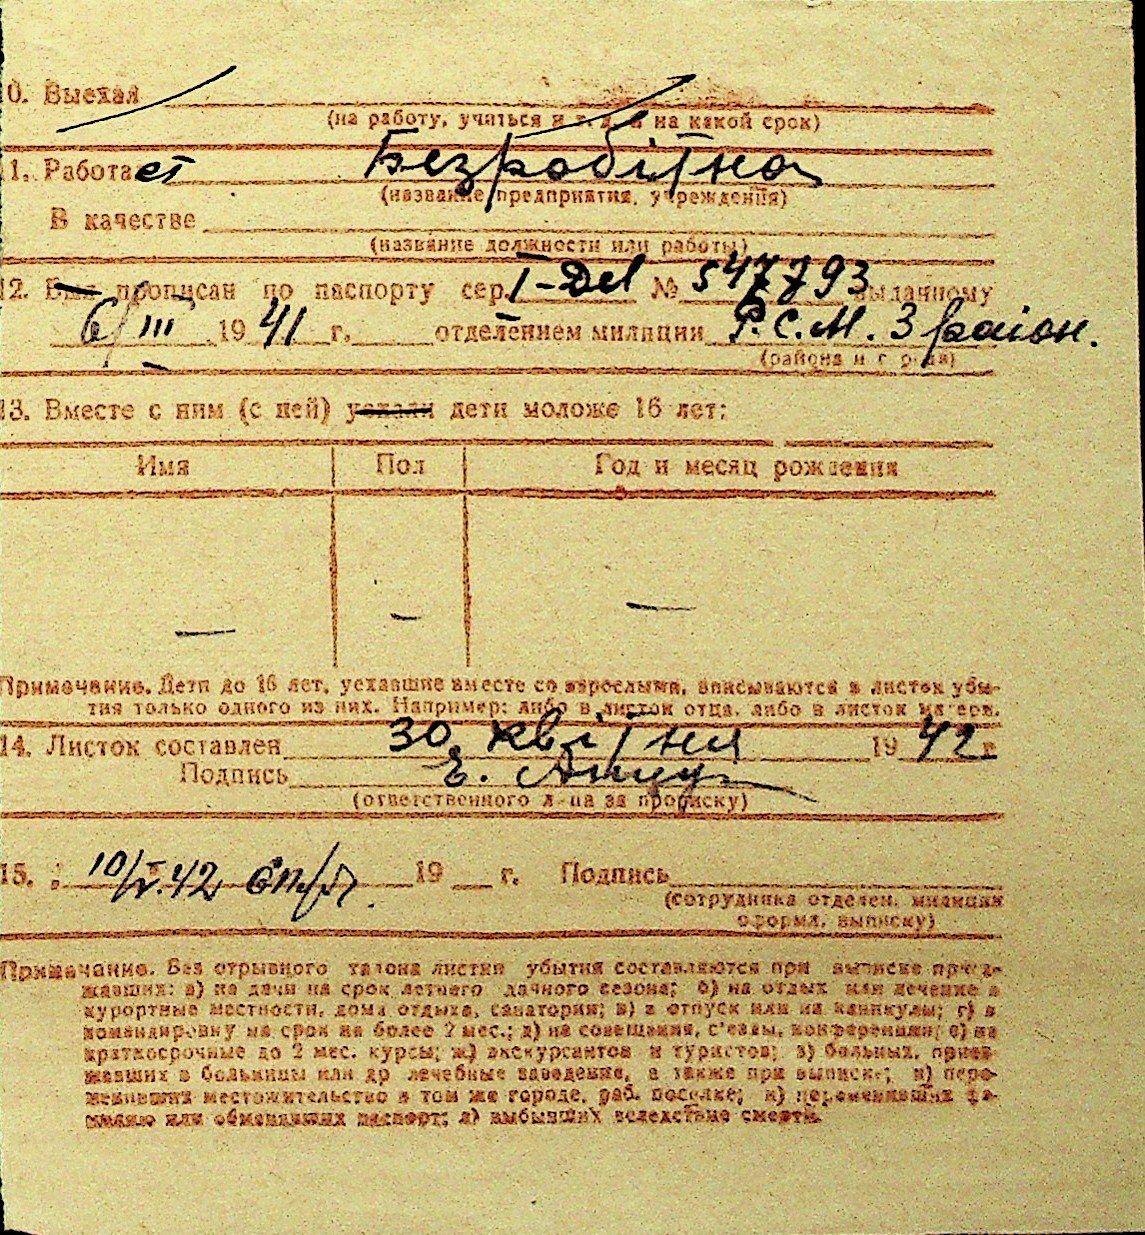 0. Выехал
(на работу, учиться и т. д. и на какой срок)
1. Работает Безробітна
(название предприятия, учреждения)
В качестве
(название должности или работы)
12. Был прописан по паспорту сер. I-Del № 547793 выданному
6/III 1941 г. отделением милиции Р.С.М. 3 район.
(района и города)
13. Вместе с ним (с ней) уехали дети моложе 16 лет:
Имя Пол Год и месяц рождения
— — —
Примечание. Дети до 16 лет, уехавшие вместе со взрослыми, вписываются в листок убы-
тия только одного из них. Например: либо в листок отца, либо в листок матери.
14. Листок составлен 30 квітня 1942 г.
Подпись Е.
(ответственного лица за прописку)
15. 10/V.42 19 г. Подпись
(сотрудника отделен. милиции
оформл. выписку)
Примечание. Без отрывного талона листки убытия составляются при выписке приез-
жавших: а) на дачи на срок летнего дачного сезона; б) на отдых или лечение в
курортные местности, дома отдыха, санатории; в) в отпуск или на каникулы; г) в
командировку на срок не более 2 мес.; д) на совещания, с'езды, конференции; е) на
краткосрочные до 2 мес. курсы; ж) экскурсантов и туристов; з) больных, приез-
жавших в больницы или др лечебные заведение, а также при выписке; и) пере-
менивших местожительство в том же городе, раб. поселке; к) переменивших фа-
милию или обменявших паспорт; л) выбывших вследствие смерти.